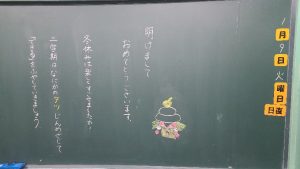 1月9日火曜日
日直
明けまして
おめでとうございます。
冬休みは楽しくすごせましたか
三学期はなにかのタツじんめざして
「できる」をふやしていきましょう